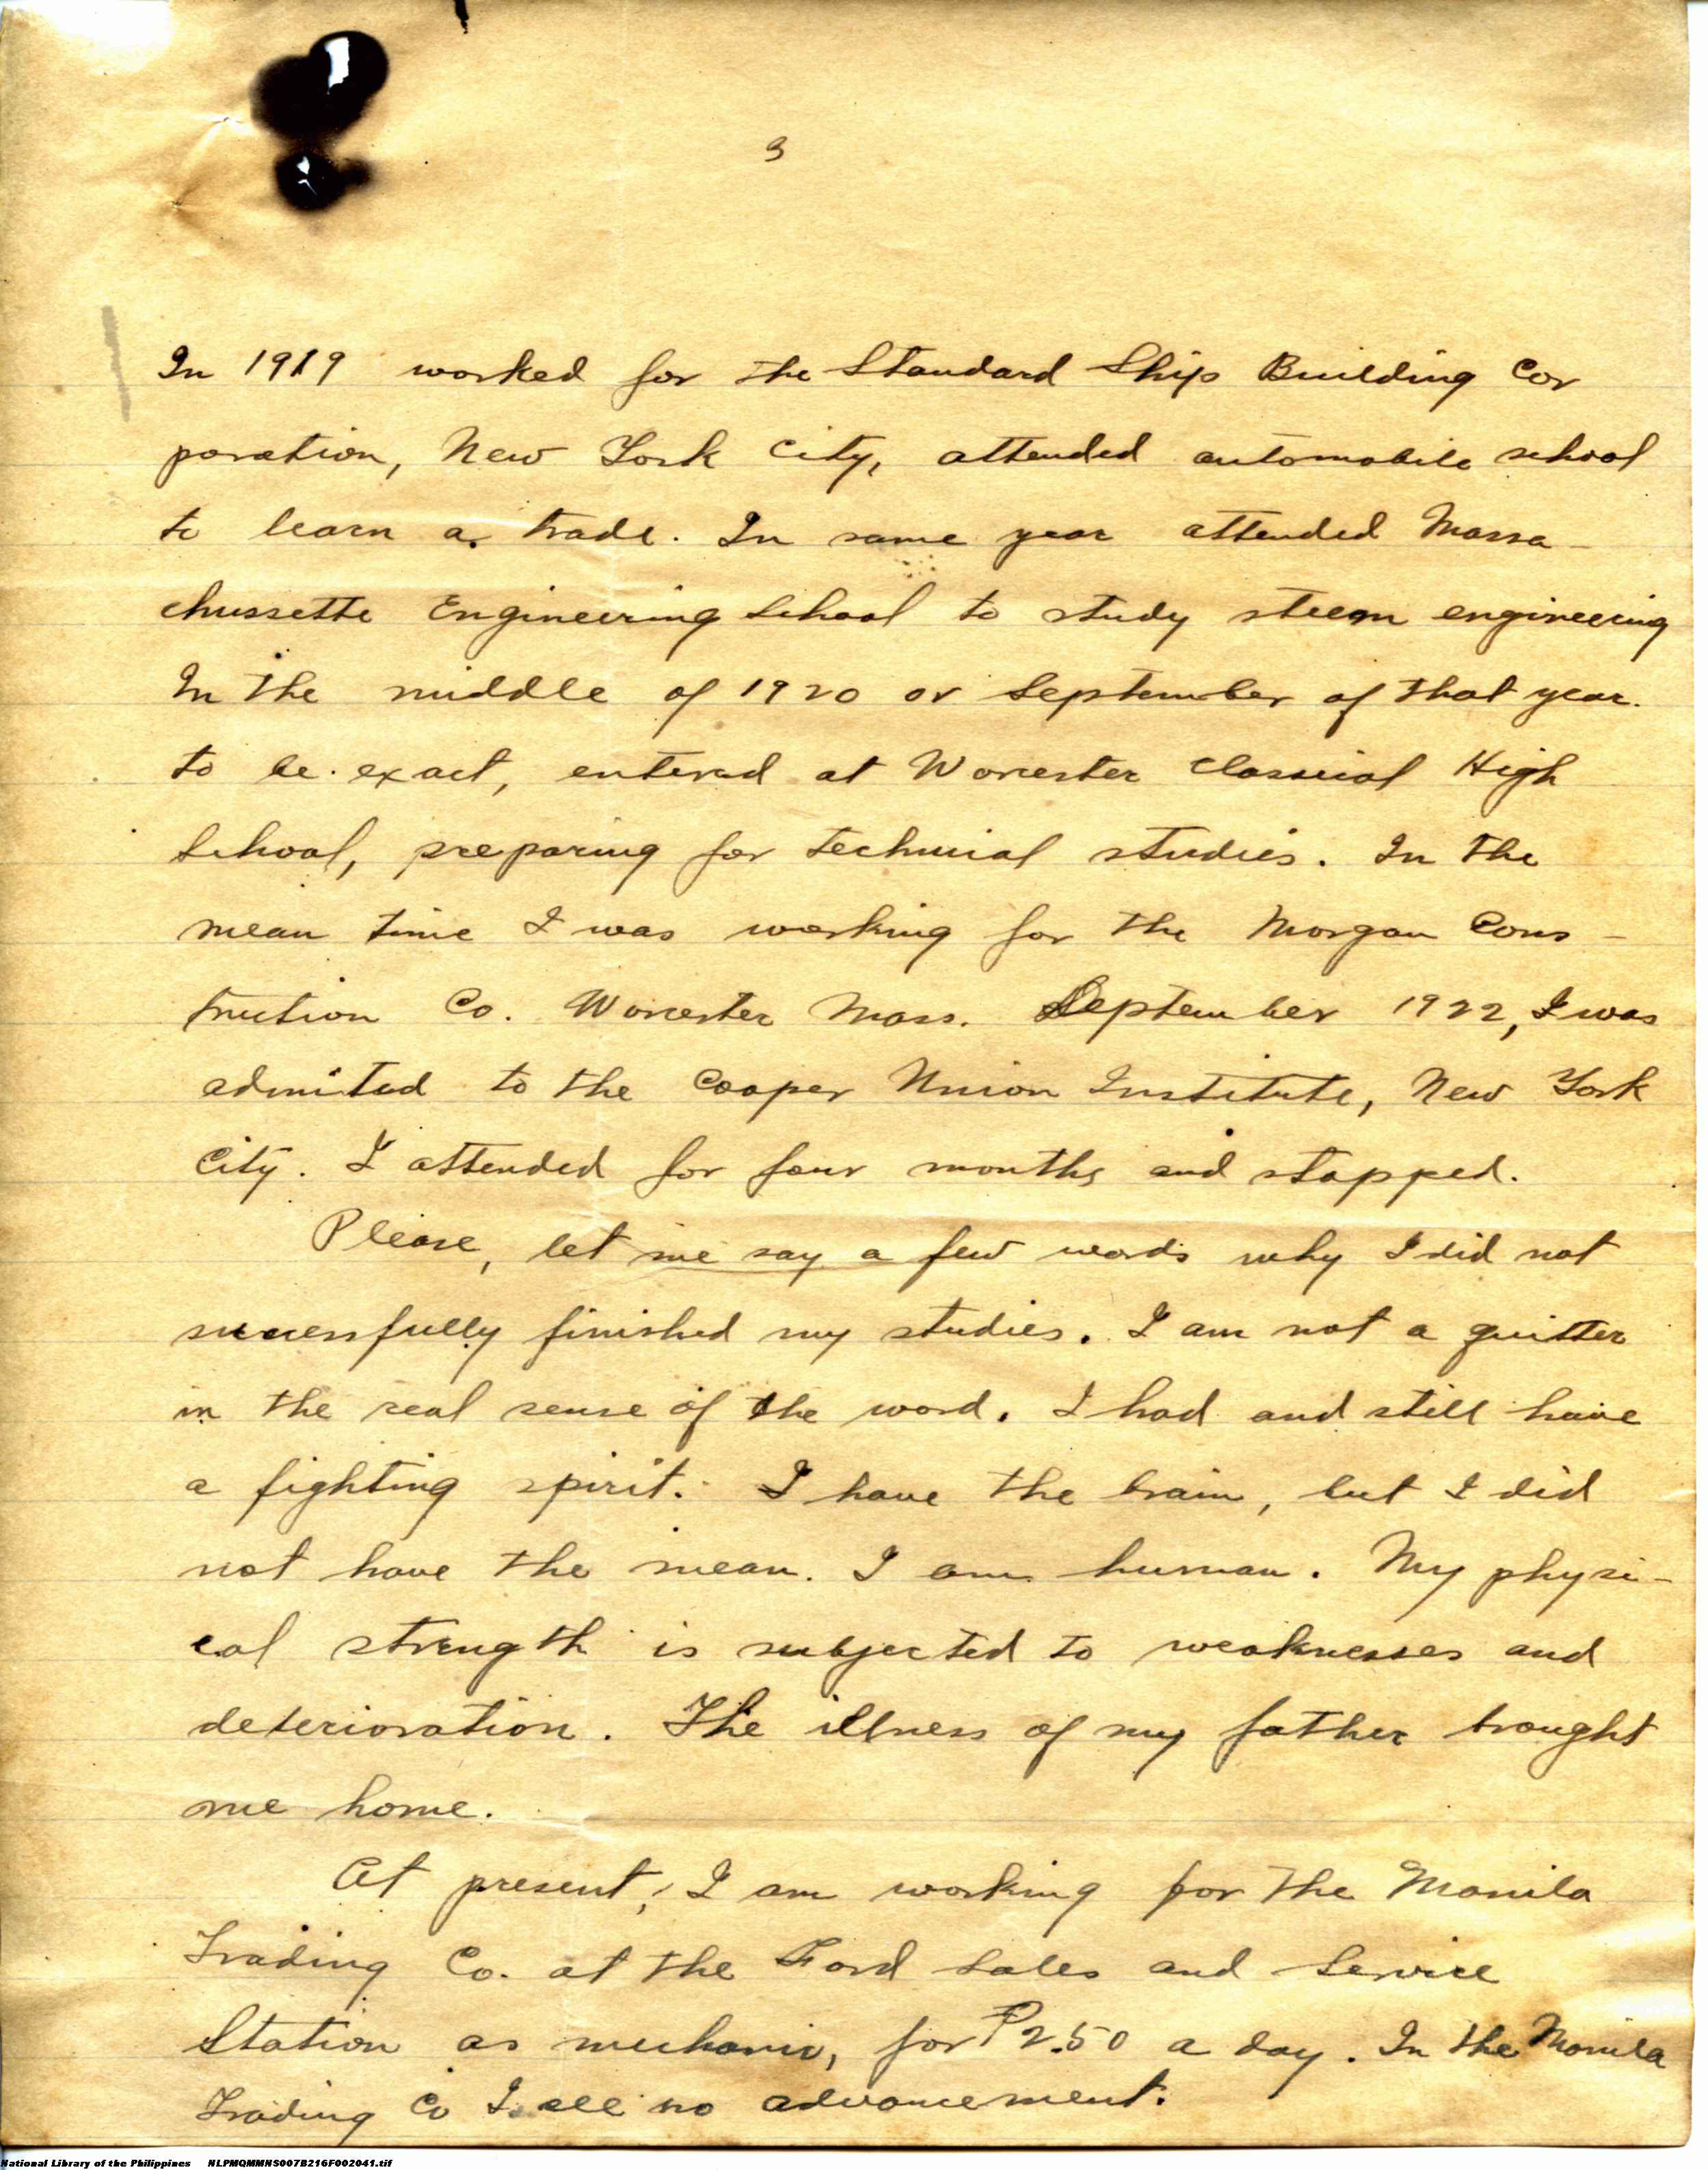 3
In 1919 worked for the Standard Ship Building Cor
poration, New York City, attended automobile school
to learn a trade. In same year attended Massa-
chussette Engineering School to study steem engineering
In the middle of 1920 or September of that year.
to be exact, entered at Worcester Classical High
School, preparing for technical studies. In the
mean time I was working for the Morgan Cons-
truction Co. Worcester Mass. September 1922, I was
admited to the Cooper Union Institute, New York
City. I attended for four months and stopped.
Please, let me say a few words why I did not
successfully finished my studies. I am not a quitter
in the real sense of the word. I had and still have
a fighting spirit. I have the brain, but I did
not have the mean. I am human. My physi-
cal strength is subjected to weaknesses and
deterioration. The illness of my father brought
me home.
At present, I am working for the Manila
Trading Co. at the Ford Sales and Service
Station as mechanic, for ₱2.50 a day. In the Manila
Trading Co I see no advancement.
National Library of the Philippines NLPMQMMNS007B216F002041.tif